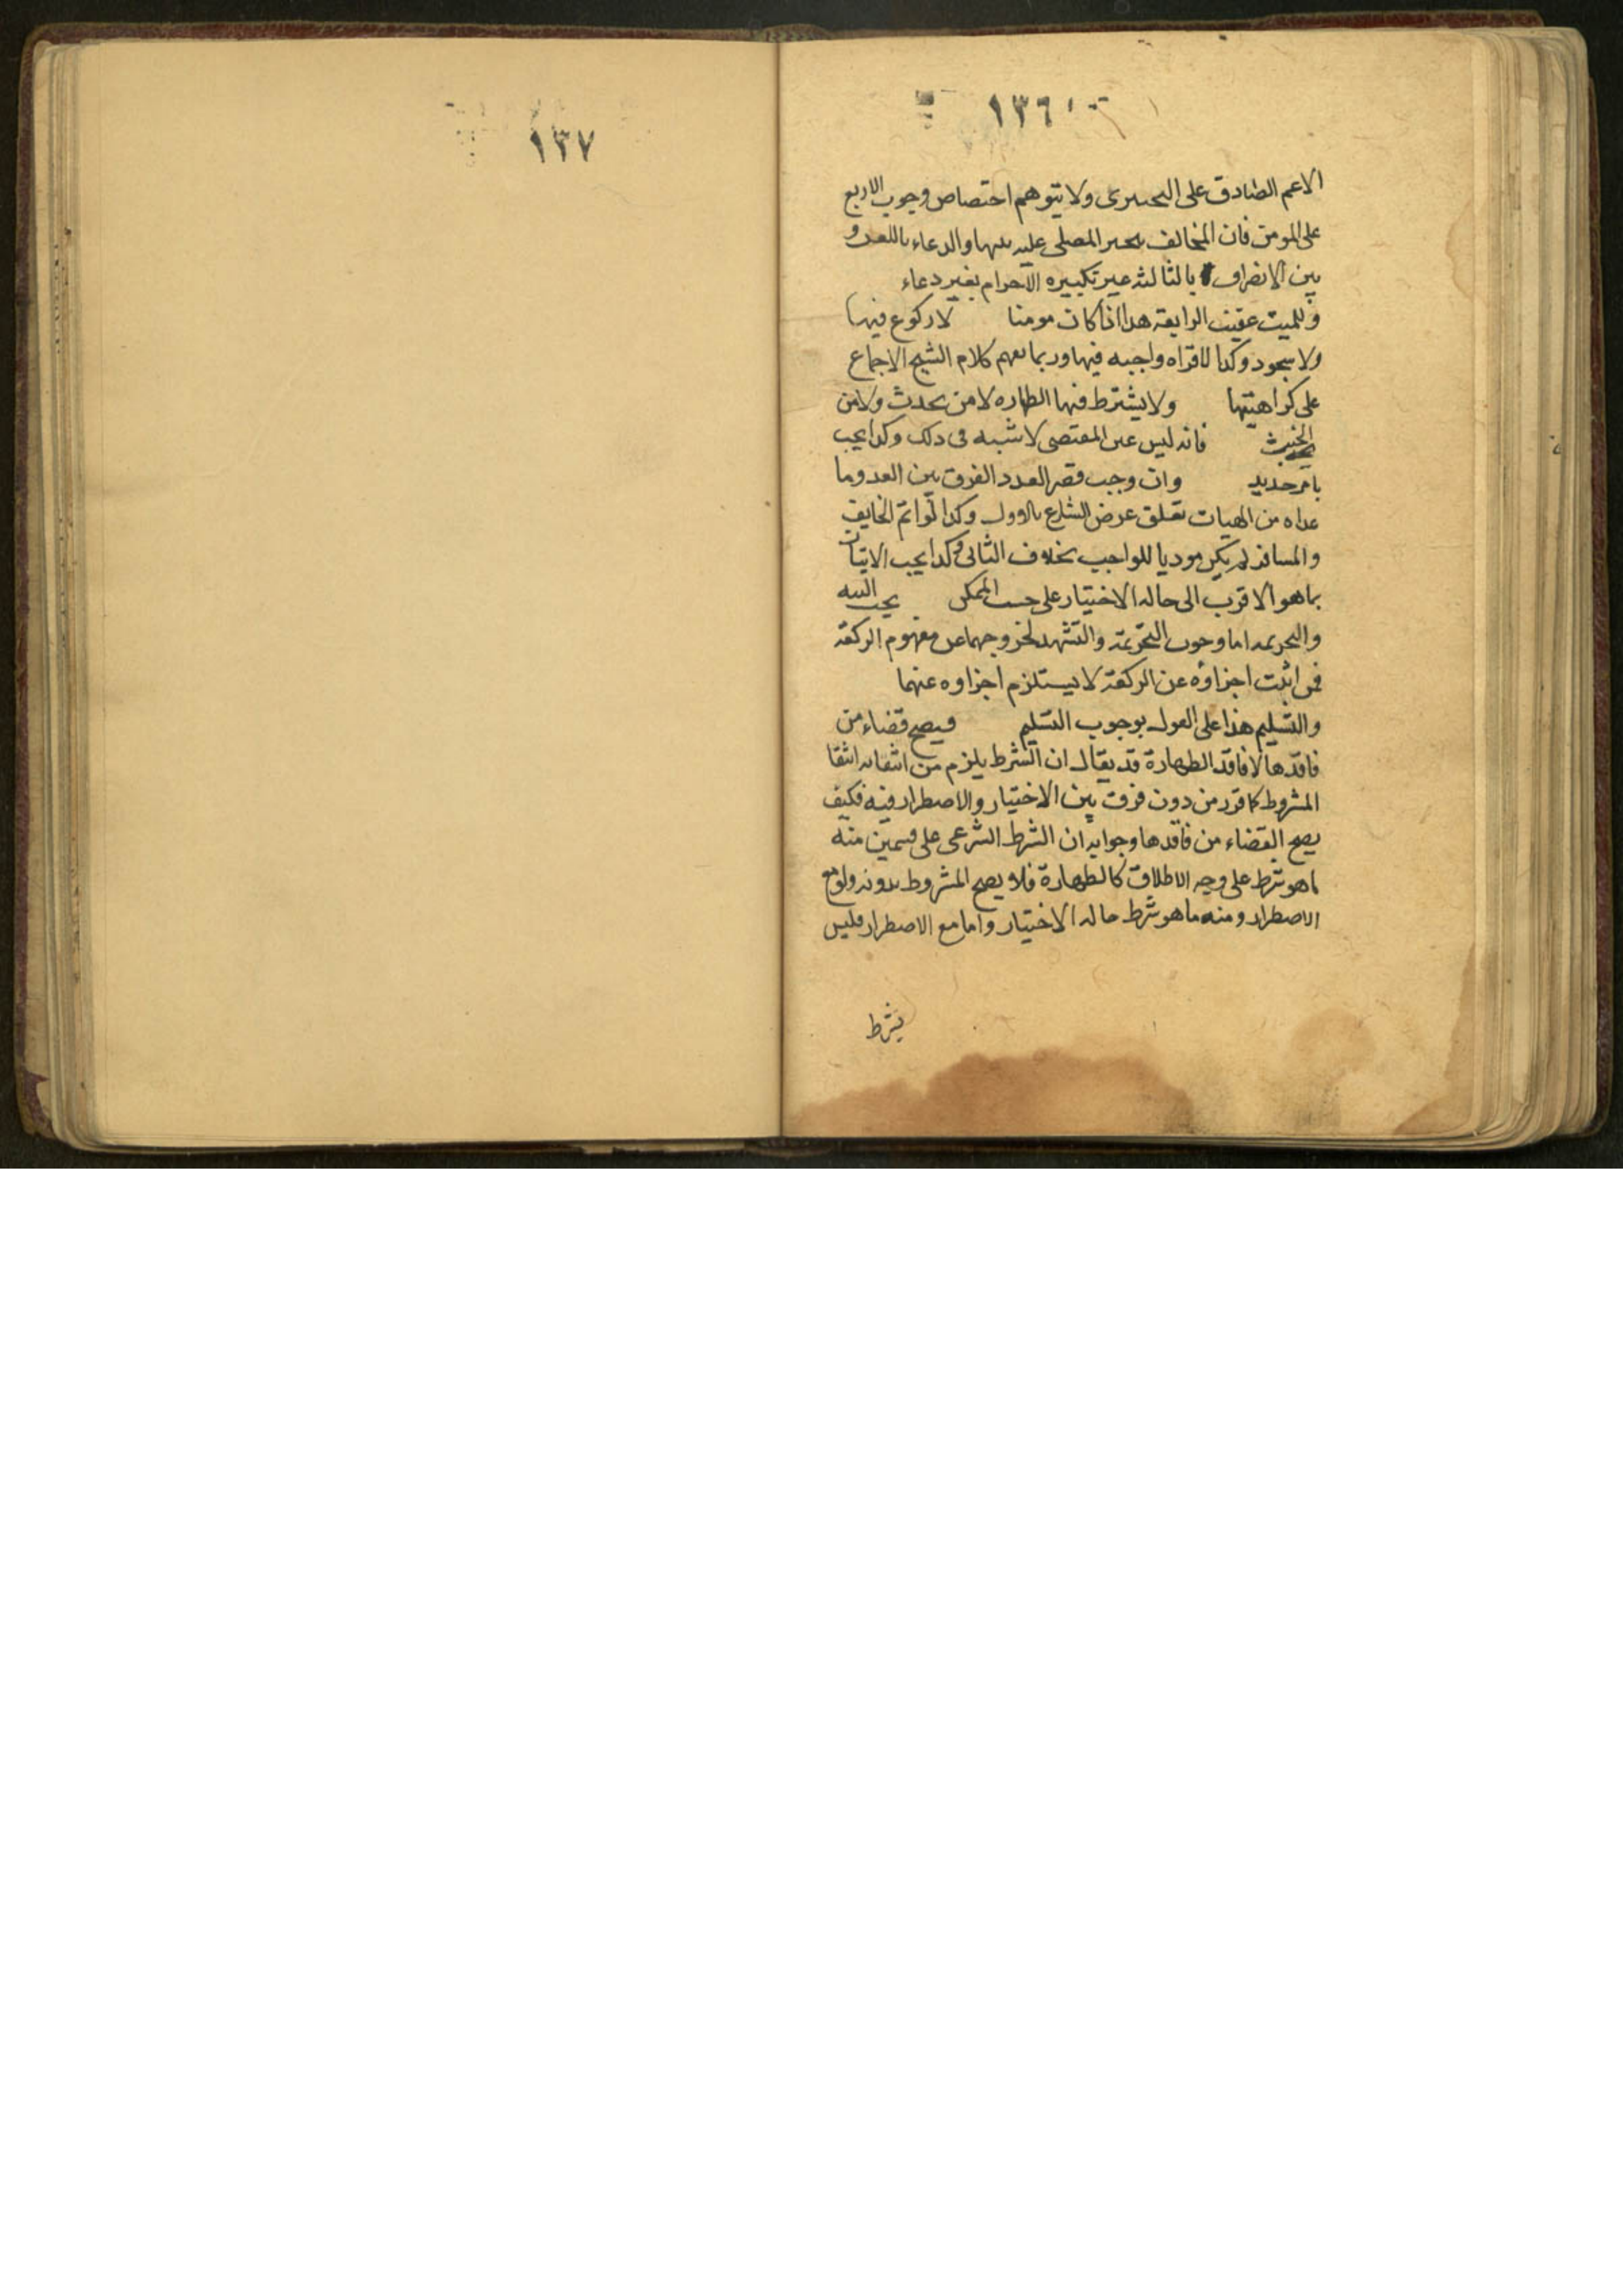 ١٣٦
الاعم الصادق على التخييرى ولا يتوهم اختصاص وجوب الاربع
على المومن فان المخالف يتخير المصلى عليه بينها والدعاء باللعن و
بين الانصراف بالثالثه غير تكبيره الاحرام بغير دعاء
وللميت عقيب الرابعة هذا اذا كان مومنا لا ركوع فيها
ولا سجود وكذا لا قراه واجبه فيها وربما يفهم كلام الشيخ الاجماع
على كراهيتها ولا يشترط فيها الطهاره لا من يحدث ولا من
الخبث فانه ليس عين المقتضى لا شبهه فى ذلك وكذا يجب
بامر جديد وان وجب قصر العدد الفرق بين العدد وما
عداه من الهيات تعلق غرض الشارع بالاول وكذا لو اتم الخايف
والمسافر لم يكن موديا للواجب بخلاف الثانى وكذا يجب الاتيان
بما هو الاقرب الى حاله الاختيار على حسب الممكن يجب النيه
والتحريمه اما وجوب التحريمة والتشهد لخروجهما عن مفهوم الركعة
فمن اثبت اجزاؤه عن الركعة لا يستلزم اجزاوه عنهما
والتسليم هذا على القول بوجوب التسليم فيصح قضاء من
فاقدها لا فاقد الطهارة قد يقال ان الشرط يلزم من انتفائه انتفا
المشروط كما قرر من دون فرق بين الاختيار والاضطرار فيه فكيف
يصح القضاء من فاقدها وجوابه ان الشرط الشرعى على قسمين منه
ما هو شرط على وجه الاطلاق كالطهارة فلا يصح المشروط بدونه ولو مع
الاضطرار ومنه ما هو شرط حاله الاختيار واما مع الاضطرار فليس
بشرط
١٣٧